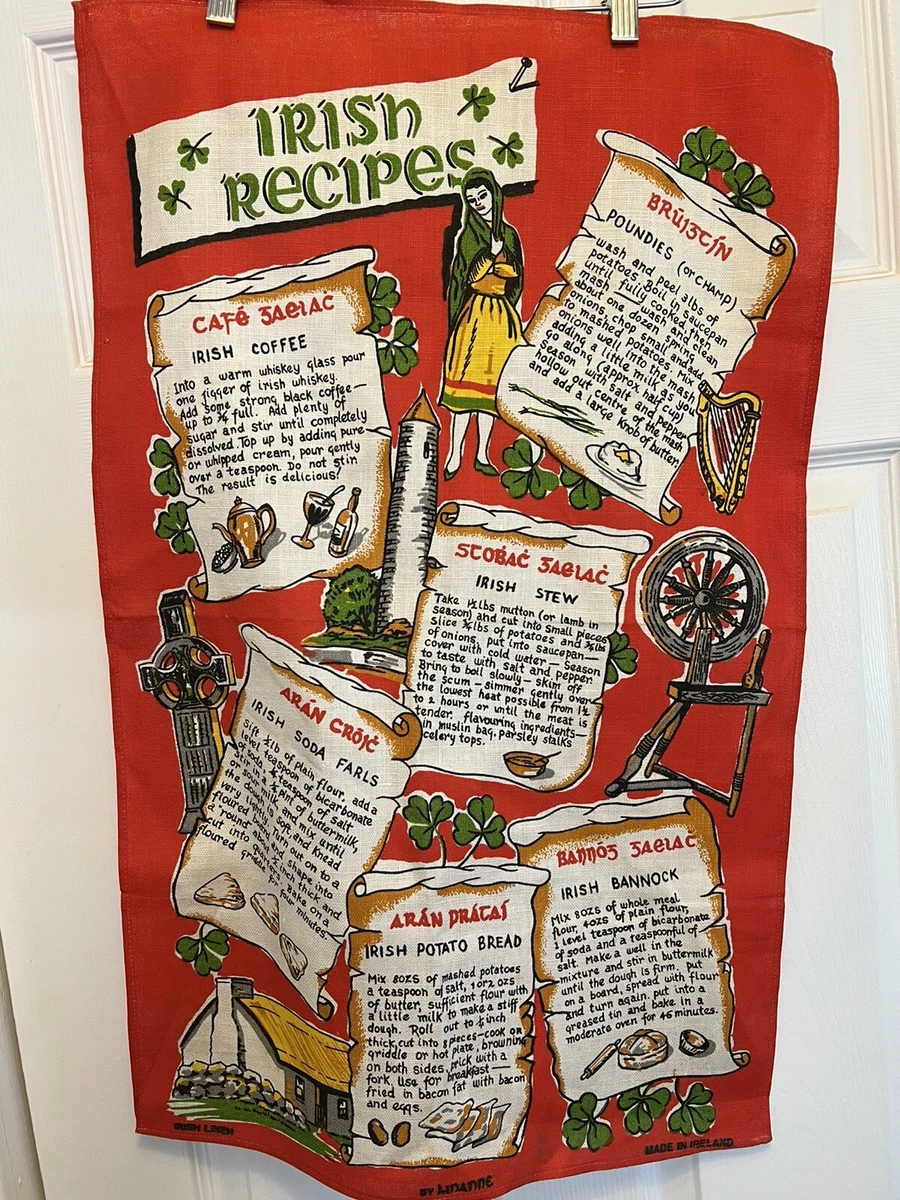 IRISH
RECIPES
BRÚIȜTÍN
POUNDIES (or CHAMP)
wash and peel 3lbs of
potatoes. Boil in saucepan
until fully cooked, then
mash — wash and clean
about one dozen spring
onions, chop small and add
to mashed potatoes. Mix
onions well into the mash
adding a little milk as you
go along (approx. half cup)
Season with salt and pepper
hollow out centre of the mash
and add a large knob of butter.
CAFÉ ȜAELAĊ
IRISH COFFEE
Into a warm whiskey glass pour
one jigger of irish whiskey.
Add some strong black coffee—
up to ¾ full. Add plenty of
sugar and stir until completely
dissolved. Top up by adding pure
or whipped cream, pour gently
over a teaspoon. Do not stir
The result is delicious!
STOBAĊ ȜAELAĊ
IRISH STEW
Take 1½lbs mutton (or lamb in
season) and cut into small pieces
Slice ¾lbs of potatoes and ¾lbs
of onions, put into saucepan—
cover with cold water — Season
to taste with salt and pepper
Bring to boil slowly — skim off
the scum — simmer gently over
the lowest heat possible from 1½
to 2 hours or until the meat is
tender. flavouring ingredients—
in muslin bag. Parsley stalks
celery tops.
ARÁN CRÓIĊ
IRISH SODA FARLS
Sift ½lb of plain flour, add a
level teaspoon of bicarbonate
of soda, ¼ teaspoon of salt.
Stir in ½ pint of buttermilk,
or sour milk, and mix until
the dough is soft, and knead
very lightly. Turn out on to a
floured board and shape into
a "round" about ½ inch thick and
cut into quarters. Bake on a
floured griddle for four minutes.
ARÁN PRÁTAÍ
IRISH POTATO BREAD
Mix 8OZS of mashed potatoes
a teaspoon of salt, 1 or 2 OZS
of butter, sufficient flour with
a little milk to make a stiff
dough. Roll out to ½ inch
thick, cut into 8 pieces—cook on
griddle or hot plate, browning
on both sides, prick with a
fork. Use for breakfast—
fried in bacon fat with bacon
and eggs.
BANNÓȜ ȜAELAĊ
IRISH BANNOCK
Mix 8OZS of whole meal
flour, 4OZS of plain flour,
1 level teaspoon of bicarbonate
of soda and a teaspoonful of
salt. Make a well in the
mixture and stir in buttermilk
until the dough is firm. put
on a board, spread with flour
and turn again. put into a
greased tin and bake in a
moderate oven for 45 minutes.
IRISH LINEN
BY LINANNE
MADE IN IRELAND